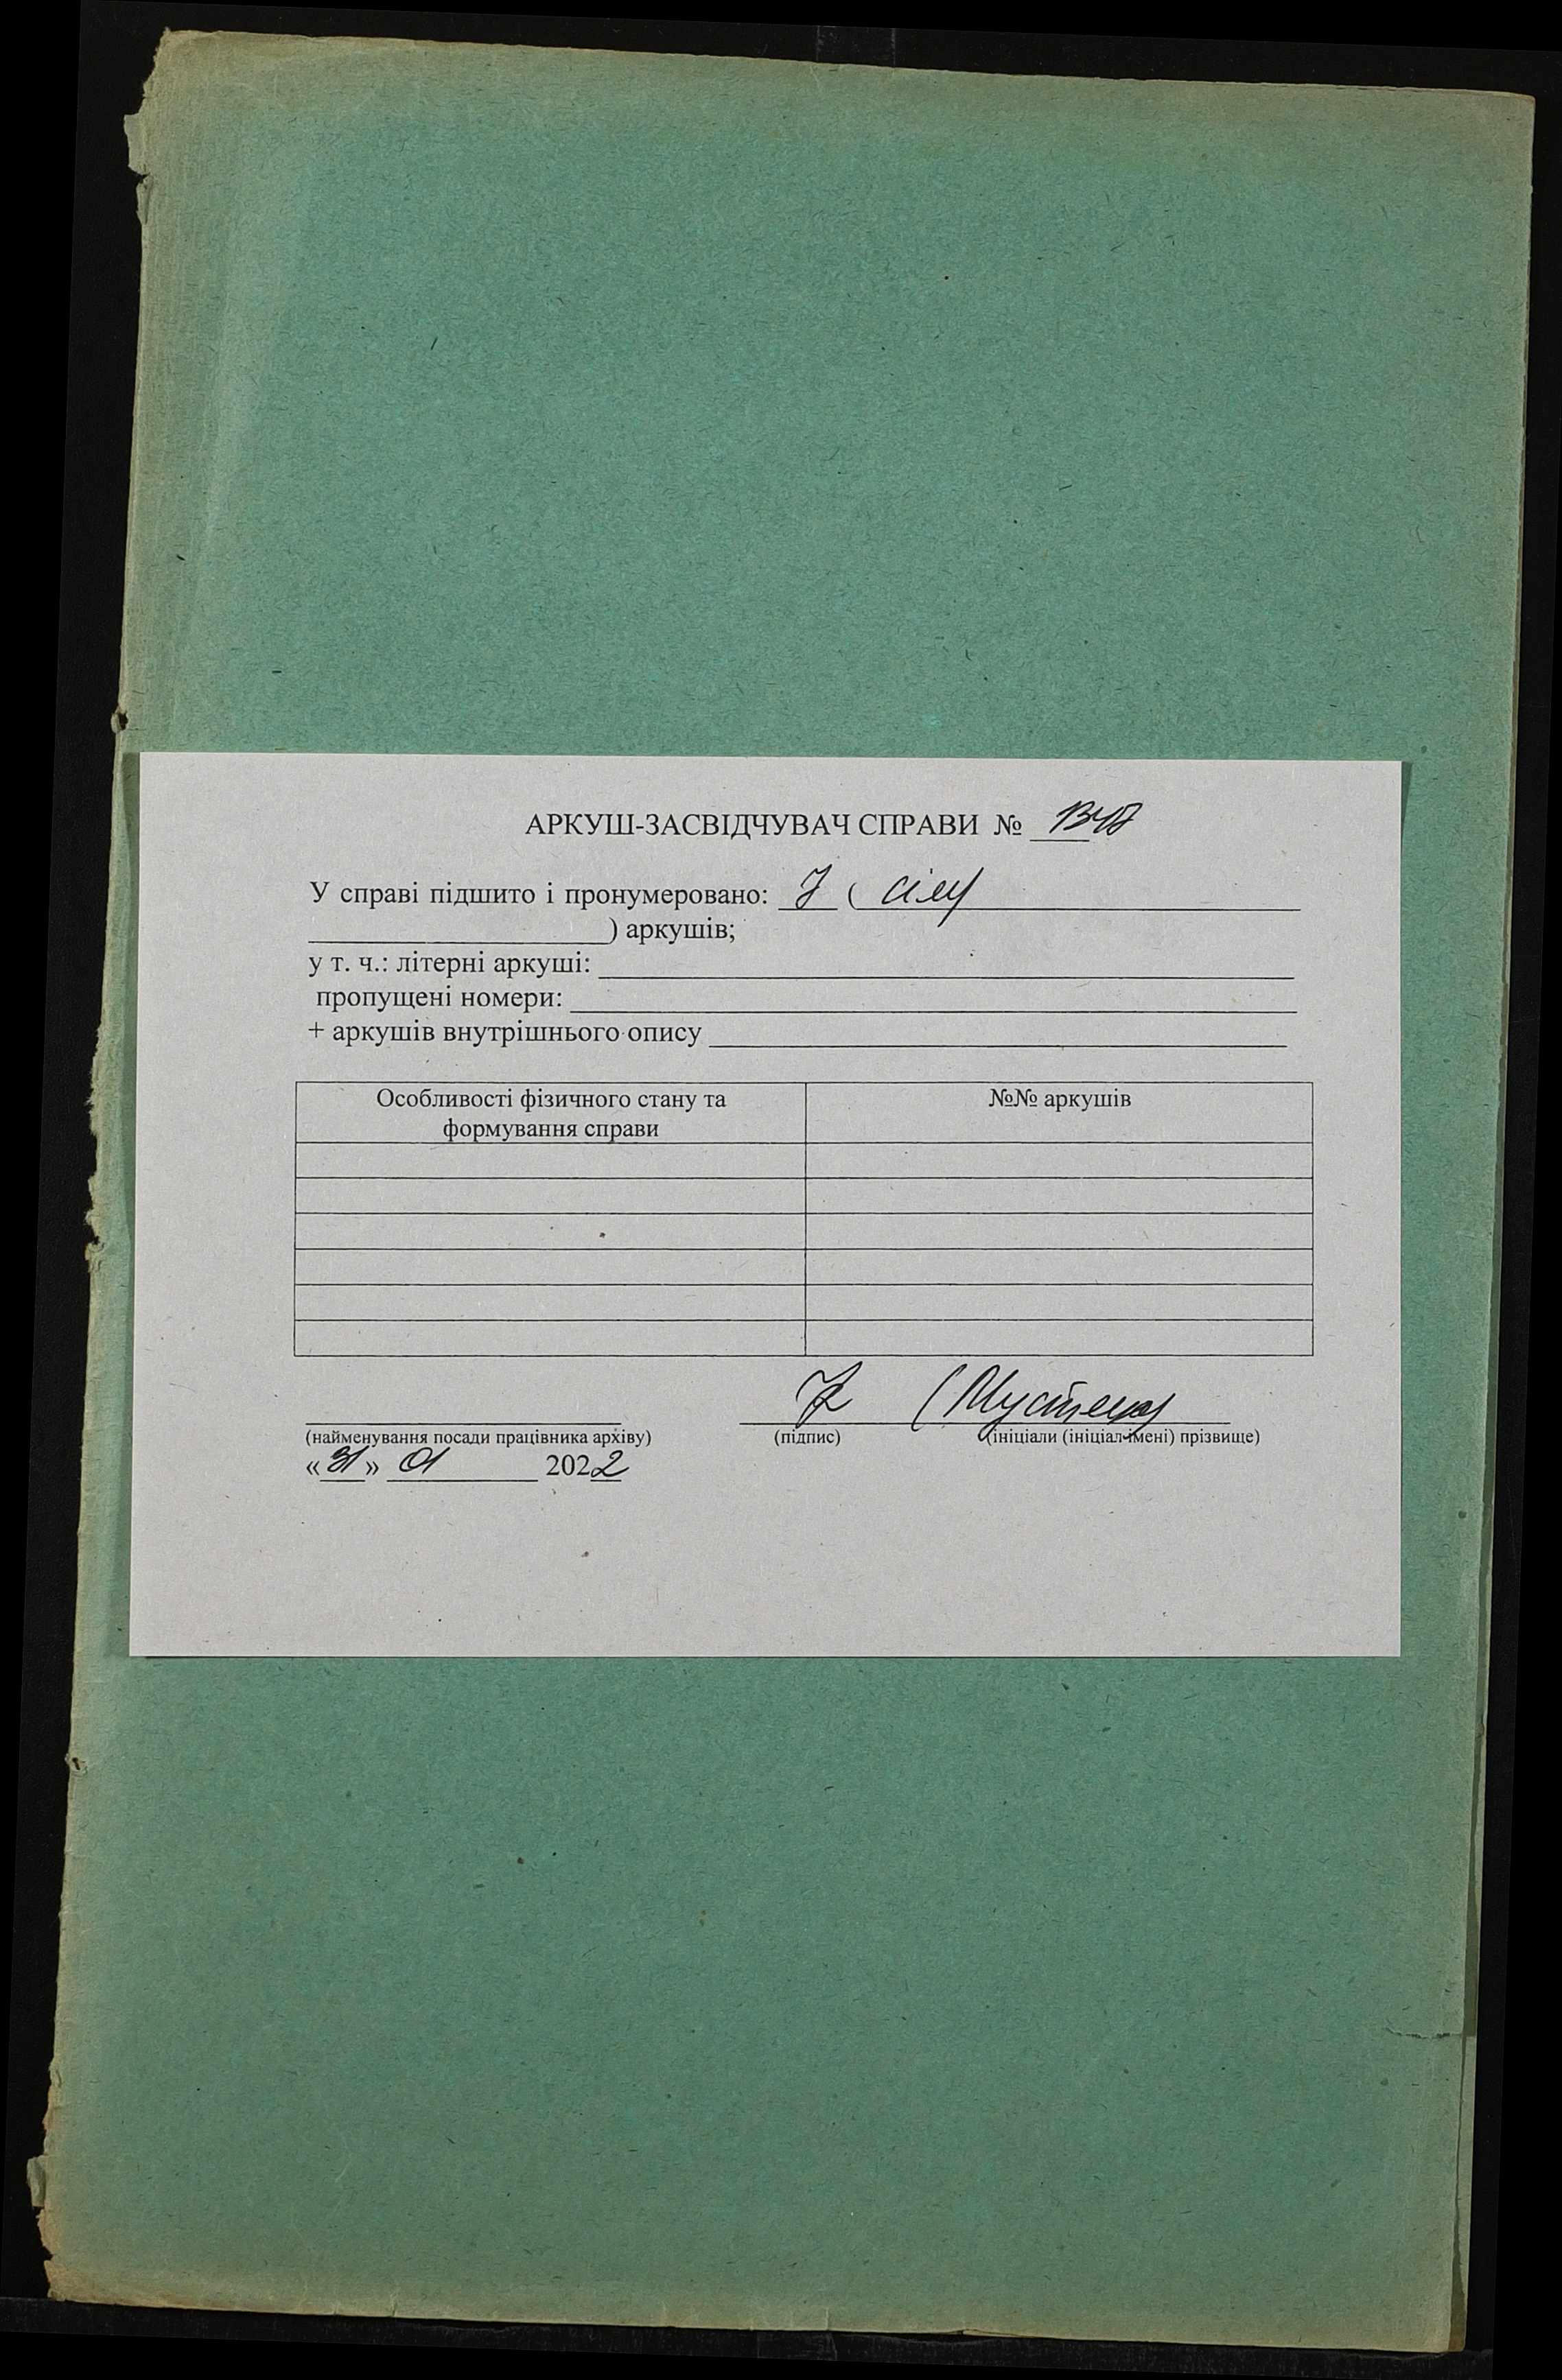 АРКУШ-ЗАСВІДЧУВАЧ СПРАВИ №
У справі підшито і пронумеровано: 7 ( сім
) аркушів;
у т. ч.: літерні аркуші:
пропущені номери:
+ аркушів внутрішнього опису
Особливості фізичного стану та
формування справи
№№ аркушів
(найменування посади працівника архіву)
(підпис)
(ініціали (ініціал імені) прізвище)
«31» 01 2022